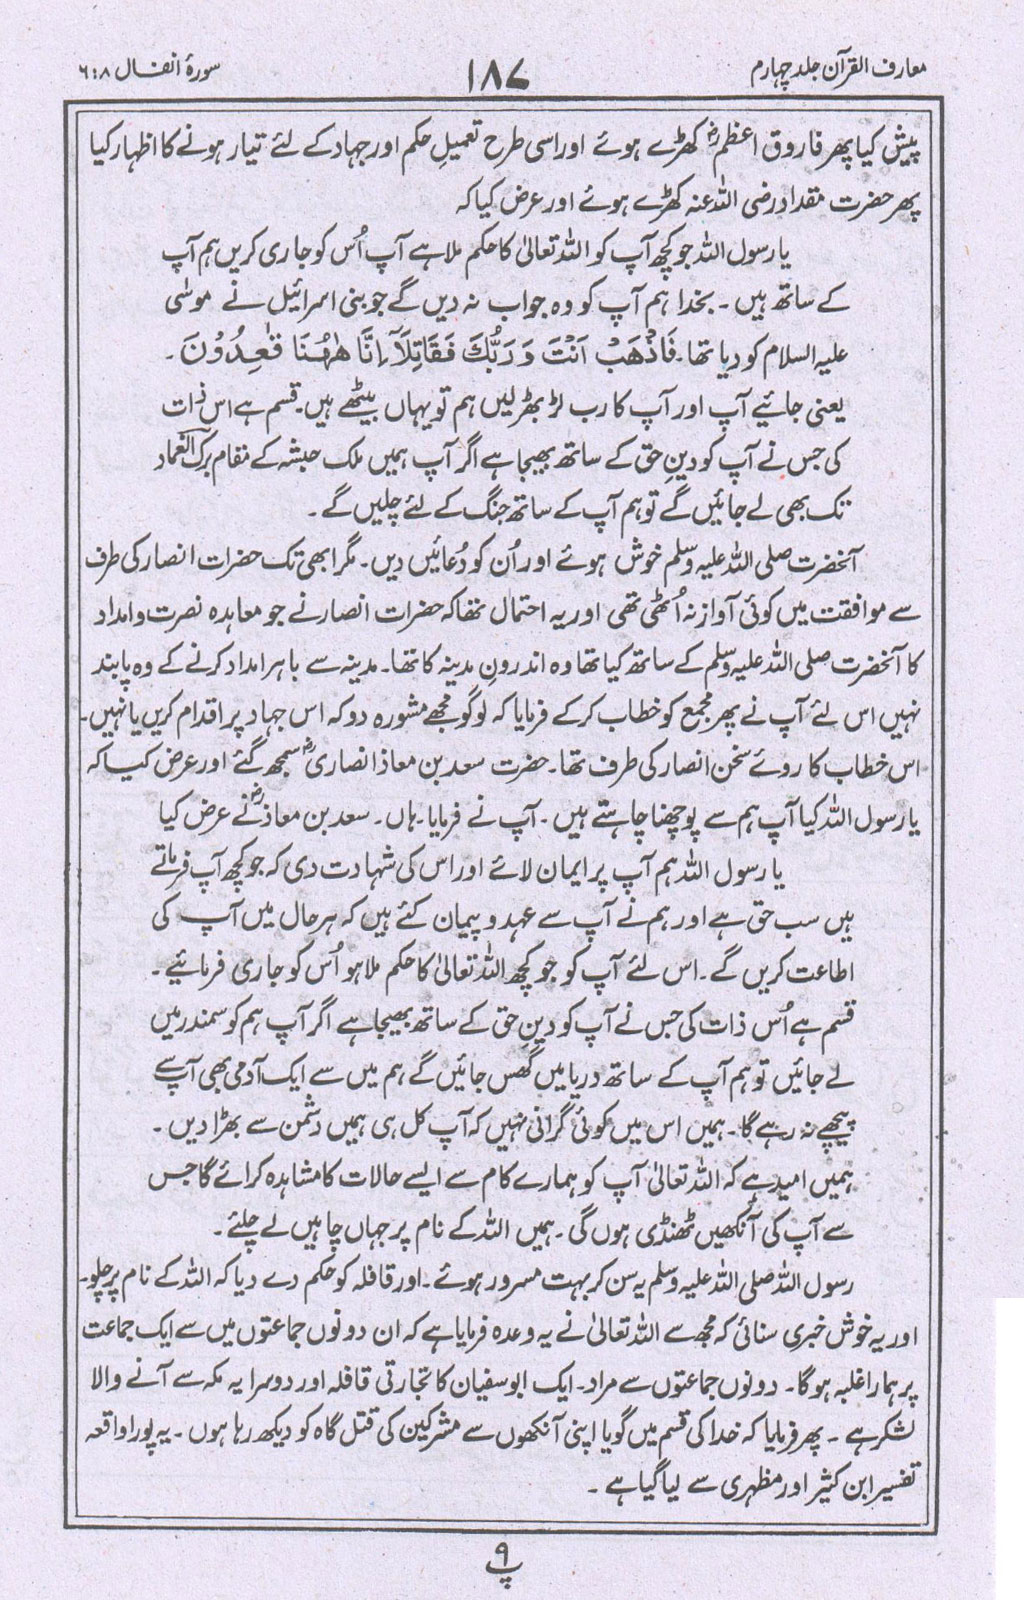 معارف القرآن جلد چہارم
۱۸۷
سورۂ انفال ۸ : ۶
پیش کیا پھر فاروق اعظمؓ کھڑے ہوئے اور اسی طرح تعمیلِ حکم اور جہاد کے لئے تیار ہونے کا اظہار کیا
پھر حضرت مقداد رضی اللہ عنہ کھڑے ہوئے اور عرض کیا کہ
یا رسول اللہ جو کچھ آپ کو اللہ تعالیٰ کا حکم ملا ہے آپ اُس کو جاری کریں ہم آپ
کے ساتھ ہیں ۔ بخدا ہم آپ کو وہ جواب نہ دیں گے جو بنی اسرائیل نے موسٰی
علیہ السلام کو دیا تھا۔ فَاذْهَبْ اَنْتَ وَ رَبُّكَ فَقَاتِلَآ اِنَّا هٰهُنَا قٰعِدُوْنَ ۔
یعنی جائیے آپ اور آپ کا رب لڑ بھڑ لیں ہم تو یہاں بیٹھے ہیں۔ قسم ہے اس ذات
کی جس نے آپ کو دینِ حق کے ساتھ بھیجا ہے اگر آپ ہمیں ملک حبشہ کے مقام برک الغماد
تک بھی لے جائیں گے تو ہم آپ کے ساتھ جنگ کے لئے چلیں گے ۔
آنحضرت صلی اللہ علیہ وسلم خوش ہوئے اور اُن کو دُعائیں دیں۔ مگر ابھی تک حضرات انصار کی طرف
سے موافقت میں کوئی آواز نہ اُٹھی تھی اور یہ احتمال تھا کہ حضرات انصار نے جو معاہدہ نصرت و امداد
کا آنحضرت صلی اللہ علیہ وسلم کے ساتھ کیا تھا وہ اندرونِ مدینہ کا تھا۔ مدینہ سے باہر امداد کرنے کے وہ پابند
نہیں اس لئے آپ نے پھر مجمع کو خطاب کرکے فرمایا کہ لوگو مجھے مشورہ دو کہ اس جہاد پر اقدام کریں یا نہیں۔
اس خطاب کا روئے سخن انصار کی طرف تھا۔ حضرت سعد بن معاذ انصاریؓ سمجھ گئے اور عرض کیا کہ
یا رسول اللہ کیا آپ ہم سے پوچھنا چاہتے ہیں۔ آپ نے فرمایا۔ ہاں۔ سعد بن معاذؓ نے عرض کیا
یا رسول اللہ ہم آپ پر ایمان لائے اور اس کی شہادت دی کہ جو کچھ آپ فرماتے
ہیں سب حق ہے اور ہم نے آپ سے عہد و پیمان کئے ہیں کہ ہر حال میں آپ کی
اطاعت کریں گے۔ اس لئے آپ کو جو کچھ اللہ تعالیٰ کا حکم ملا ہو اُس کو جاری فرمائیے ۔
قسم ہے اُس ذات کی جس نے آپ کو دینِ حق کے ساتھ بھیجا ہے اگر آپ ہم کو سمندر میں
لے جائیں تو ہم آپ کے ساتھ دریا میں گھس جائیں گے ہم میں سے ایک آدمی بھی آپ سے
پیچھے نہ رہے گا۔ ہمیں اس میں کوئی گرانی نہیں کہ آپ کل ہی ہمیں دشمن سے بھڑا دیں ۔
ہمیں امید ہے کہ اللہ تعالیٰ آپ کو ہمارے کام سے ایسے حالات کا مشاہدہ کرائے گا جس
سے آپ کی آنکھیں ٹھنڈی ہوں گی ۔ ہمیں اللہ کے نام پر جہاں چاہیں لے چلئے ۔
رسول اللہ صلی اللہ علیہ وسلم یہ سن کر بہت مسرور ہوئے ۔ اور قافلہ کو حکم دے دیا کہ اللہ کے نام پر چلو۔
اور یہ خوش خبری سنائی کہ مجھ سے اللہ تعالیٰ نے یہ وعدہ فرمایا ہے کہ ان دونوں جماعتوں میں سے ایک جماعت
پر ہمارا غلبہ ہوگا۔ دونوں جماعتوں سے مراد۔ ایک ابوسفیان کا تجارتی قافلہ اور دوسرا یہ مکہ سے آنے والا
لشکر ہے ۔ پھر فرمایا کہ خدا کی قسم میں گویا اپنی آنکھوں سے مشرکین کی قتل گاہ کو دیکھ رہا ہوں۔ یہ پورا واقعہ
تفسیر ابن کثیر اور مظہری سے لیا گیا ہے ۔
۹
پ